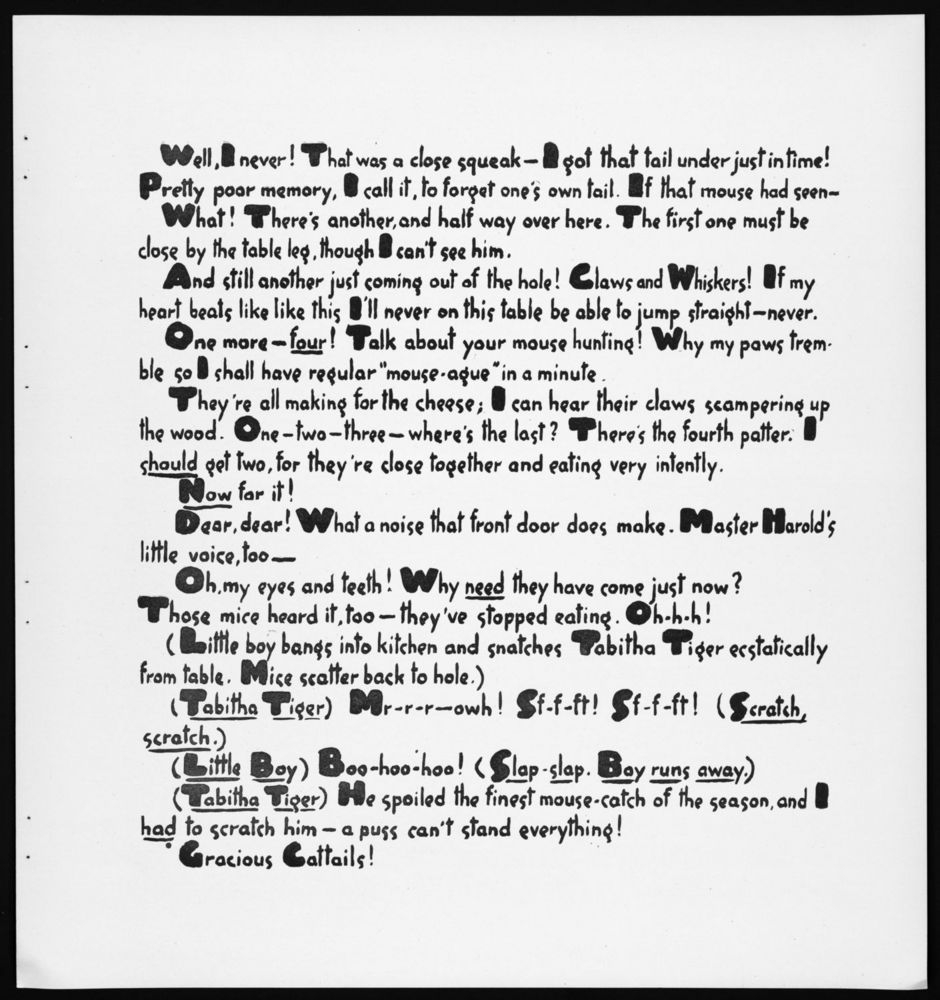 Well, I never! That was a close squeak—I got that tail under just in time!
Pretty poor memory, I call it, to forget one's own tail. If that mouse had seen—
What! There's another, and half way over here. The first one must be
close by the table leg, though I can't see him.
And still another just coming out of the hole! Claws and Whiskers! If my
heart beats like like this I'll never on this table be able to jump straight—never.
One more—four! Talk about your mouse hunting! Why my paws trem-
ble so I shall have regular "mouse-ague" in a minute.
They're all making for the cheese; I can hear their claws scampering up
the wood. One-two-three—where's the last? There's the fourth patter. I
should get two, for they're close together and eating very intently.
Now for it!
Dear, dear! What a noise that front door does make. Master Harold's
little voice, too—
Oh, my eyes and teeth! Why need they have come just now?
Those mice heard it, too—they've stopped eating. Oh-h-h!
(Little boy bangs into kitchen and snatches Tabitha Tiger ecstatically
from table. Mice scatter back to hole.)
(Tabitha Tiger) Mr-r-r—owh! Sf-f-ft! Sf-f-ft! (Scratch,
scratch.)
(Little Boy) Boo-hoo-hoo! (Slap-slap. Boy runs away.)
(Tabitha Tiger) He spoiled the finest mouse-catch of the season, and I
had to scratch him—a puss can't stand everything!
Gracious Cattails!